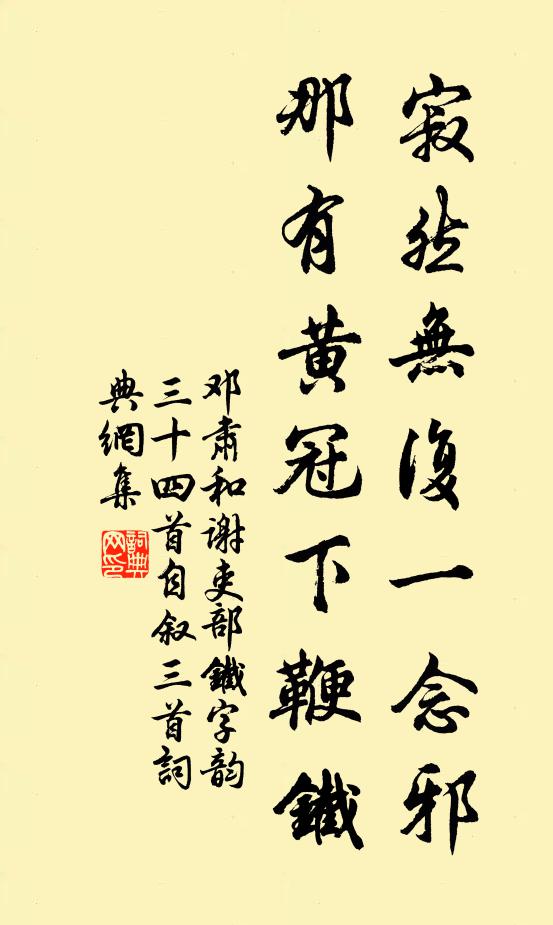 寂然無復一念邪
那有黃冠下鞭鐵
邓肅和谢吏部鐵字韵
三十四首自叙三首詞
典網集
詞典网印